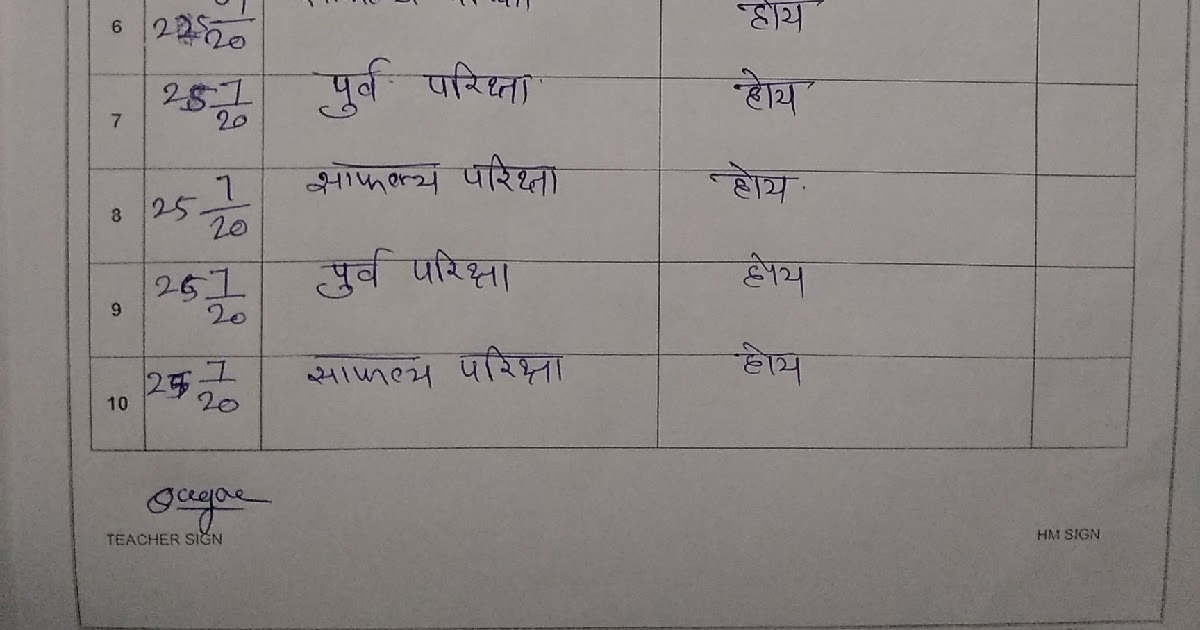 6 225/20 होय
7 25 7/20 पुर्व परिक्षा होय
8 25 7/20 साफल्य परिक्षा होय.
9 25 7/20 पुर्व परिक्षा होय
10 25 7/20 साफल्य परिक्षा होय
TEACHER SIGN HM SIGN